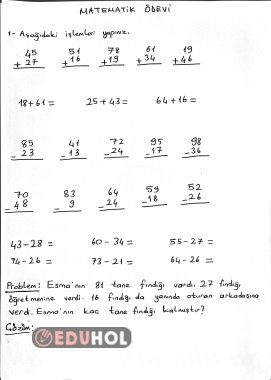 MATEMATİK ÖDEVİ
1- Aşağıdaki işlemleri yapınız.
45 51 78 61 19
+27 +16 +19 +34 +46
18+61= 25+43= 64+16=
85 41 72 95 98
-23 -13 -24 -17 -36
70 83 64 59 52
-48 -9 -24 -18 -26
43-28= 60-34= 55-27=
74-26= 73-21= 64-26=
Problem: Esma'nın 81 tane fındığı vardı. 27 fındığı
öğretmenine verdi. 16 fındığı da yanında oturan arkadaşına
verdi. Esma'nın kaç tane fındığı kalmıştır?
Çözüm:
EDUHOL